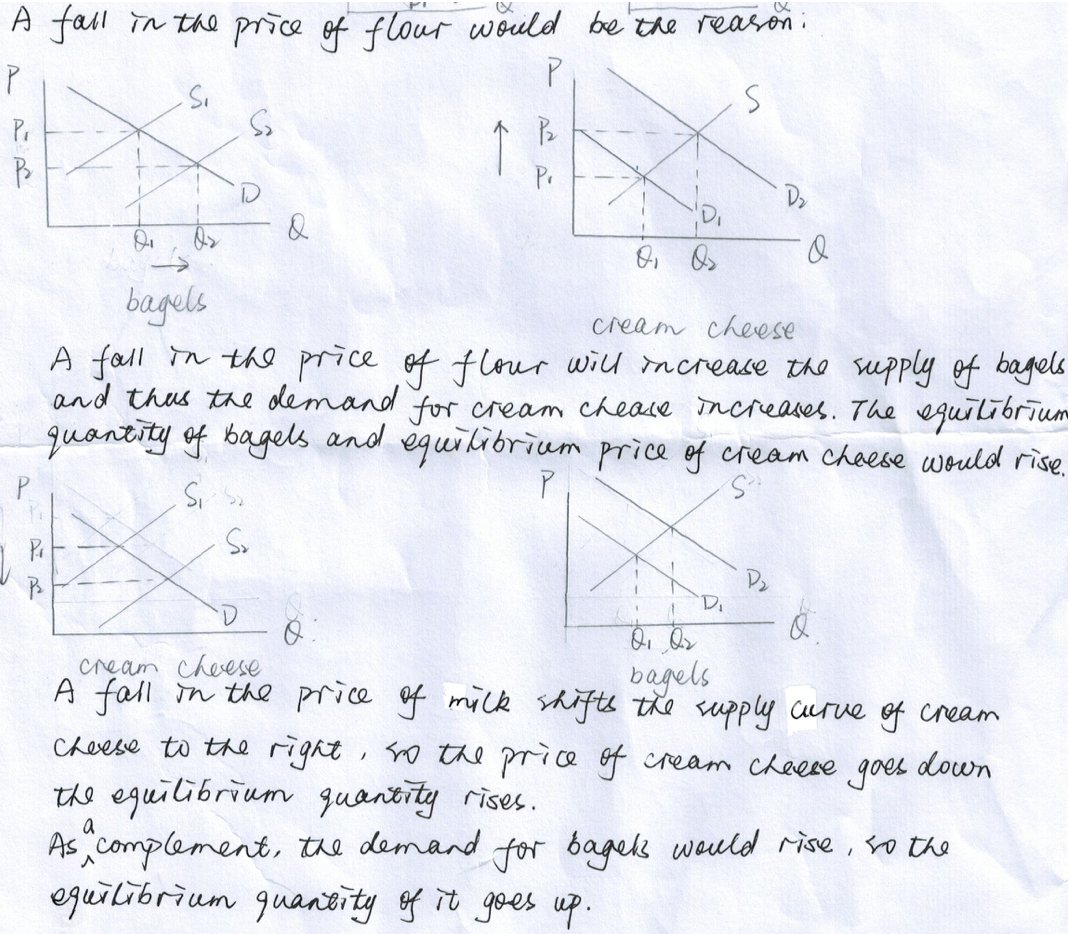 A fall in the price of flour would be the reason:
P
S₁
P₁
S₂
P₂
D
Q₁ Q₂ Q
→
bagels
P
S
↑ P₂
P₁
D₂
D₁
Q₁ Q₂ Q
cream cheese
A fall in the price of flour will increase the supply of bagels
and thus the demand for cream chease increases. The equilibrium
quantity of bagels and equilibrium price of cream cheese would rise.
P
S₁
P₁
S₂
P₂
D
Q
cream cheese
P
S
D₂
D₁
Q₁ Q₂ Q
bagels
A fall in the price of milk shifts the supply curve of cream
cheese to the right, so the price of cream cheese goes down
the equilibrium quantity rises.
As a complement, the demand for bagels would rise, so the
equilibrium quantity of it goes up.